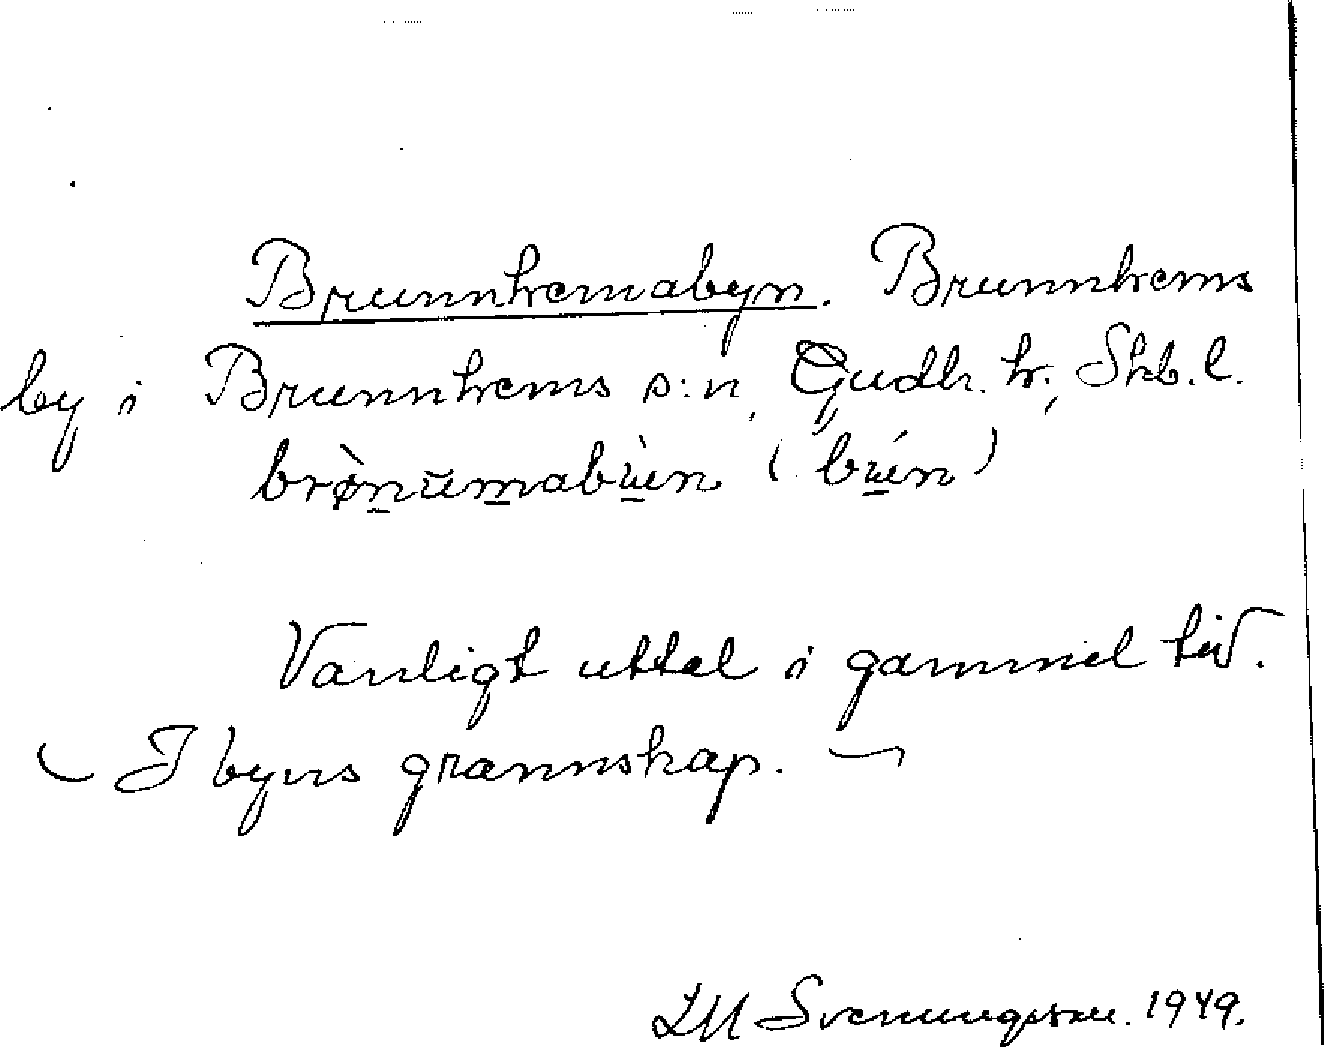 Brunnhemabyn. Brunnhems
by i Brunnhems s:n, Gudh. h:, Skb. l.
brø̀nŭmabùen (búen)
Vanligt uttal i gammel tid.
I byns grannskap.
LM Svenungsson. 1949.